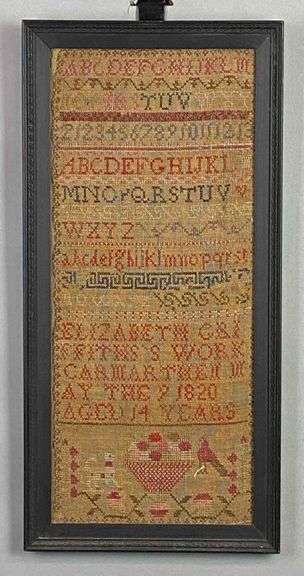 ABCDEFGHIJKL M
TUV
1 2 3 4 5 6 7 8 9 10 11 12 13
ABCDEFGHIJKL
MNOPQRSTUV
WXYZ
abcdefghijklmnopqrst
ELIZABETH GRI
FFITHS S WORK
CARMARTHEN M
AY THE 7 1820
AGED 14 YEARS